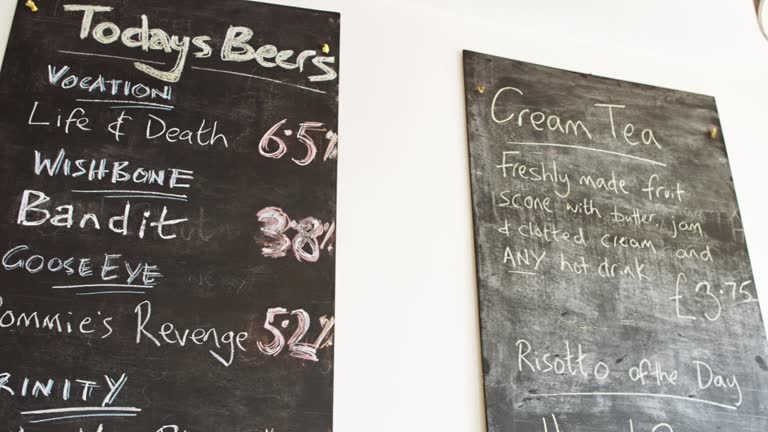 Todays Beers
VOCATION
Life & Death 6.5%
WISHBONE
Bandit 3.8%
GOOSE EYE
Pommie's Revenge 5.2%
TRINITY
Cream Tea
Freshly made fruit
scone with butter, jam
& clotted cream and
ANY hot drink
£3.75
Risotto of the Day